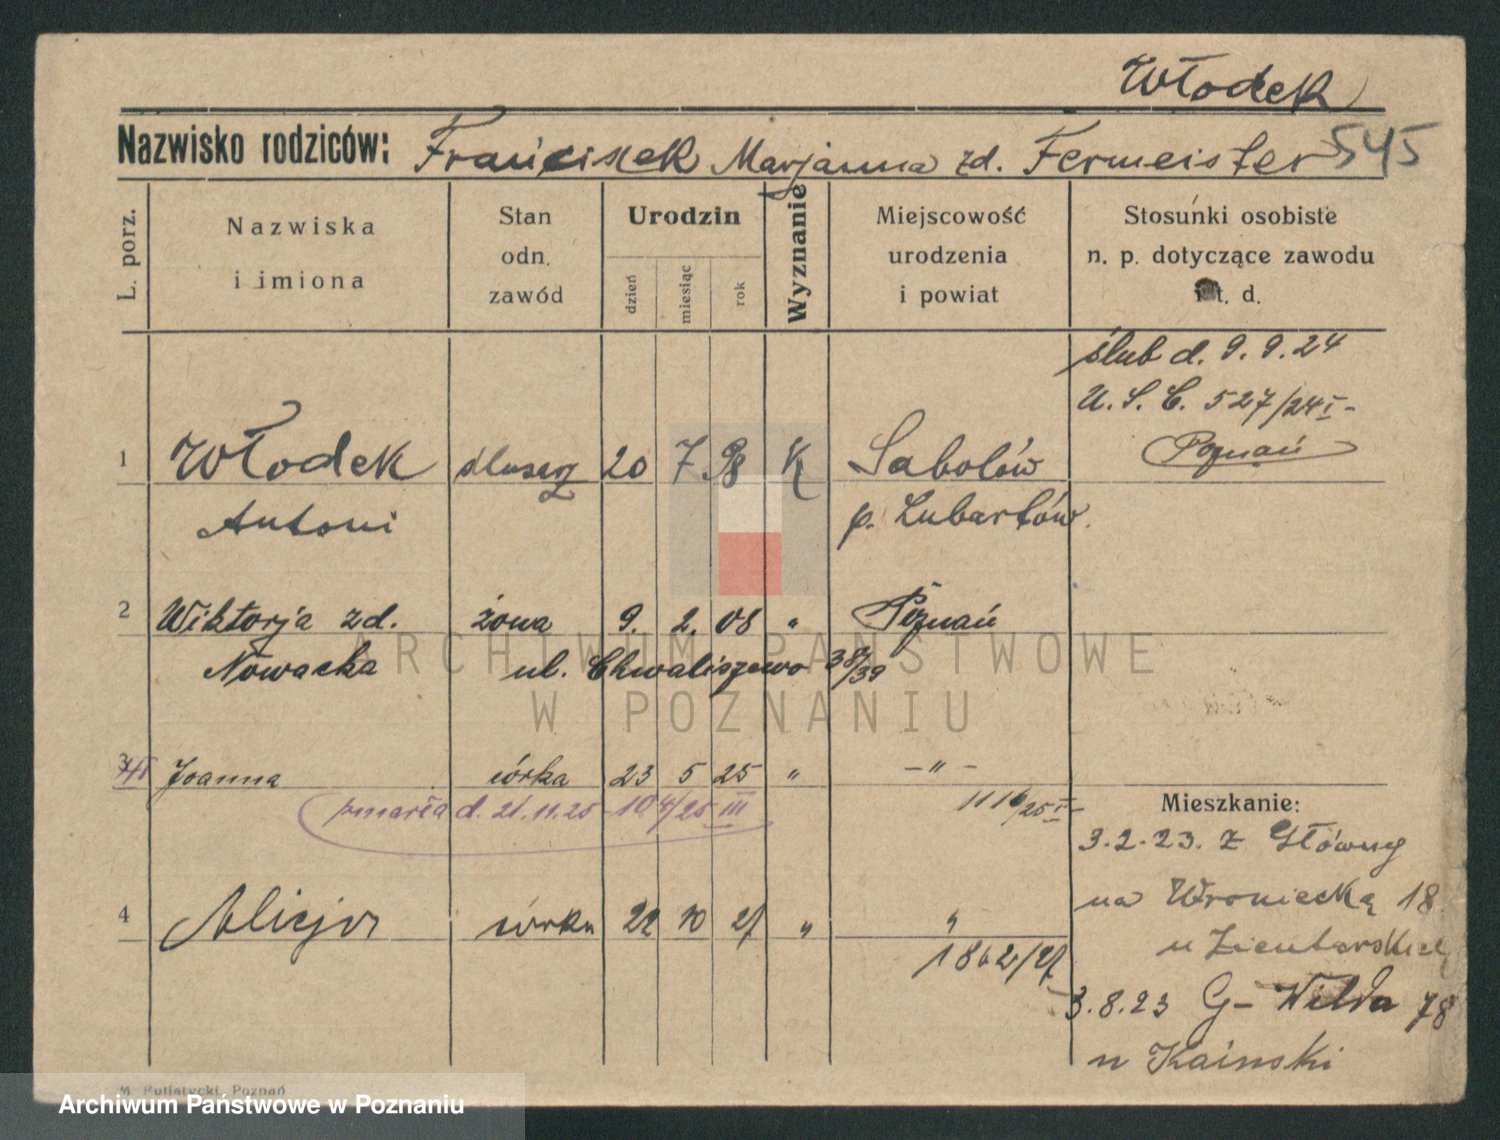 Włodek
Nazwisko rodziców: Franciszek Marjanna zd. Fermeister 545
L. porz.
Nazwiska
i imiona
Stan
odn.
zawód
Urodzin
dzień
miesiąc
rok
Wyznanie
Miejscowość
urodzenia
i powiat
Stosunki osobiste
n. p. dotyczące zawodu
i t. d.
ślub d. 9. 9. 24
U. S. C. 527/24 I -
Poznań
1 Włodek ślusarz 20 7 98 K Sabolów
Antoni p. Lubartów.
2 Wiktorja zd. żona 9. 2. 08 " Poznań
Nowacka ul. Chwaliszewo 38/39
3 Joanna córka 23 5 25 " - " -
zmarła d. 21.11.25 - 104/25 III 1116/25 I -
Mieszkanie:
3.2.23. z Główny
na Wroniecką 18
u Zientarskiej
4 Alicja córka 22 10 27 " "
1862/27
3.8.23 G- Wilda 78
u Kainski
M. Putiatycki, Poznań
ARCHIWUM PAŃSTWOWE
W POZNANIU
Archiwum Państwowe w Poznaniu